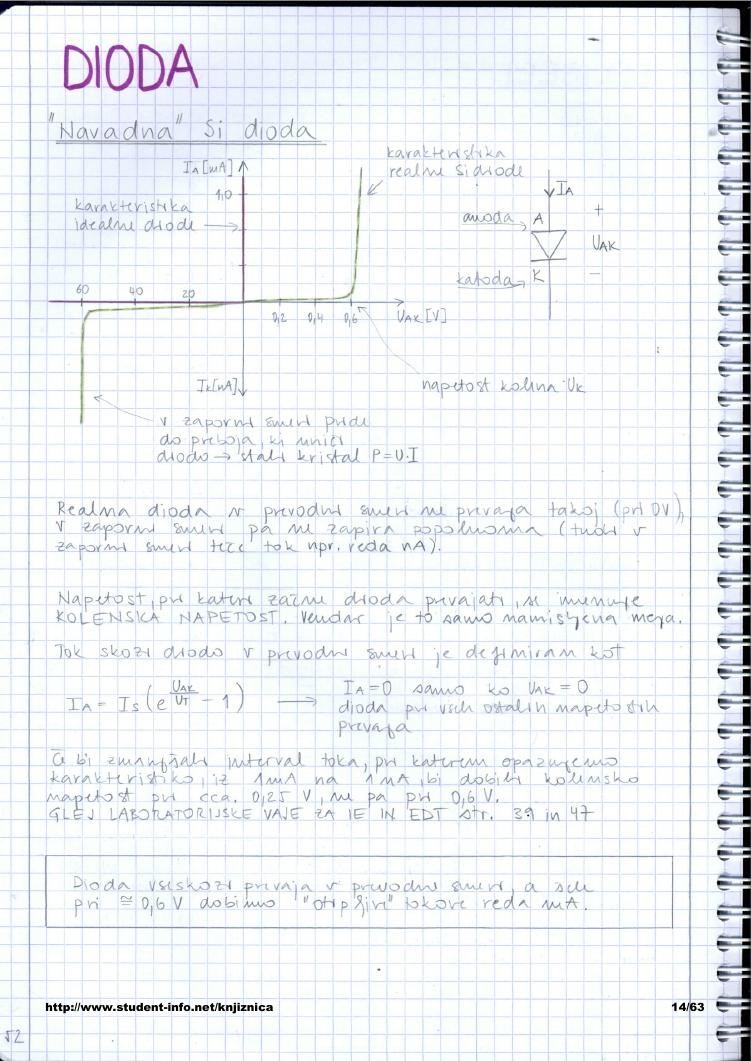 DIODA
"Navadna" Si dioda
karakteristika
realne Si diode
IA [mA]
1,0
karakteristika
idealne diode
IA
anoda A
+
UAK
katoda K
-
60 40 20
0,2 0,4 0,6 UAK [V]
napetost kolena UK
v zaporni smeri pride
do preboja, ki uniči
diodo → stali kristal P=U·I
Realna dioda v prevodni smeri ne prevaja takoj (pri 0V),
v zaporni smeri pa ne zapira popolnoma (tudi v
zaporni smeri teče tok npr. reda nA).
Napetost, pri kateri začne dioda prevajati, se imenuje
KOLENSKA NAPETOST. Vendar je to samo namišljena meja.
Tok skozi diodo v prevodni smeri je definiran kot
IA = IS (e^(UAK/UT) - 1) → IA=0 samo ko UAK=0
dioda pri vseh ostalih napetostih
prevaja
Če bi zmanjšali interval toka, pri katerem opazujemo
karakteristiko, iz 1mA na bi dobili kolensko
napetost pri cca. 0,25 V, ne pa pri 0,6 V.
GLEJ LABORATORIJSKE VAJE ZA IE IN EDT str. 39 in 47
Dioda vseskozi prevaja v prevodni smeri, a šele
pri ≅ 0,6 V dobimo "otipljive" tokove reda mA.
http://www.student-info.net/knjiznica
14/63